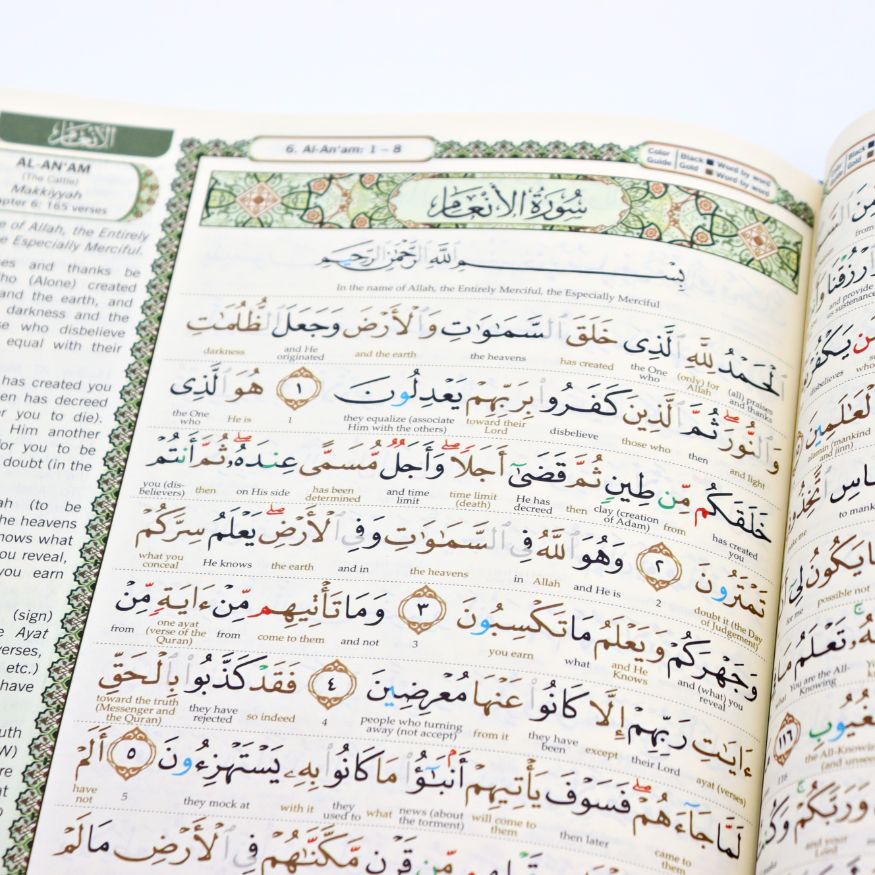 الأنعام
AL-AN'AM
(The Cattle)
Makkiyyah
apter 6: 165 verses
e of Allah, the Entirely
e Especially Merciful.
ses and thanks be
ho (Alone) created
and the earth, and
darkness and the
se who disbelieve
equal with their
has created you
en has decreed
r you to die).
Him another
for you to be
doubt (in the
ah (to be
he heavens
nows what
ou reveal,
you earn
(sign)
e Ayat
verses,
etc.)
have
ruth
W)
are
at
6. Al-An'am: 1 – 8
Color Guide Black Word by word
Gold Word by word
سُورَةُ الأَنْعَامِ
بِسْمِ ٱللَّهِ ٱلرَّحْمَٰنِ ٱلرَّحِيمِ
In the name of Allah, the Entirely Merciful, the Especially Merciful
ٱلْحَمْدُ لِلَّهِ ٱلَّذِى خَلَقَ ٱلسَّمَٰوَٰتِ وَٱلْأَرْضَ وَجَعَلَ ٱلظُّلُمَٰتِ
(all) praises and thanks (only) for Allah the One who has created the heavens and the earth and He originated darkness
وَٱلنُّورَ ۖ ثُمَّ ٱلَّذِينَ كَفَرُوا۟ بِرَبِّهِمْ يَعْدِلُونَ ١ هُوَ ٱلَّذِى
and light then those who disbelieve toward their Lord they equalize (associate Him with the others) 1 He is the One who
خَلَقَكُم مِّن طِينٍ ثُمَّ قَضَىٰٓ أَجَلًا ۖ وَأَجَلٌ مُّسَمًّى عِندَهُۥ ۖ ثُمَّ أَنتُمْ
has created you from clay (creation of Adam) then He has decreed time limit (death) and time limit has been determined on His side then you (dis-believers)
تَمْتَرُونَ ٢ وَهُوَ ٱللَّهُ فِى ٱلسَّمَٰوَٰتِ وَفِى ٱلْأَرْضِ ۖ يَعْلَمُ سِرَّكُمْ
doubt it (the Day of Judgement) 2 and He is Allah in the heavens and in the earth He knows what you conceal
وَجَهْرَكُمْ وَيَعْلَمُ مَا تَكْسِبُونَ ٣ وَمَا تَأْتِيهِم مِّنْ ءَايَةٍ مِّنْ
and (what) you reveal and He Knows what you earn 3 and not come to them from one ayat (verse of the Quran) from
ءَايَٰتِ رَبِّهِمْ إِلَّا كَانُوا۟ عَنْهَا مُعْرِضِينَ ٤ فَقَدْ كَذَّبُوا۟ بِٱلْحَقِّ
ayat (verses) their Lord except they have been from it people who turning away (not accept) 4 so indeed they have rejected toward the truth (Messenger and the Quran)
لَمَّا جَآءَهُمْ ۖ فَسَوْفَ يَأْتِيهِمْ أَنۢبَٰٓؤُا۟ مَا كَانُوا۟ بِهِۦ يَسْتَهْزِءُونَ ٥ أَلَمْ
came to them then later will come to them news (about the torment) what they used to with it they mock at 5 have not
مَّكَّنَّٰهُمْ فِى ٱلْأَرْضِ مَا لَمْ